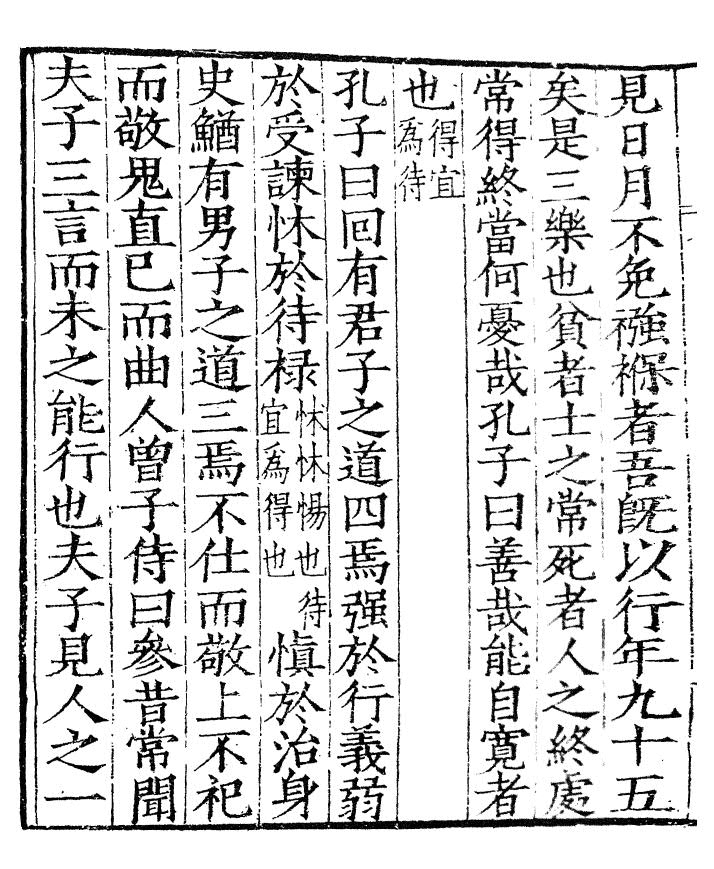 見日月不免襁褓者吾既以行年九十五
矣是三樂也貧者士之常死者人之終處
常得終當何憂哉孔子曰善哉能自寛者
也得宜為待
孔子曰回有君子之道四焉强於行義弱
於受諫怵於待禄怵怵惕也待宜為得也慎於治身
史鰌有男子之道三焉不仕而敬上不祀
而敬鬼直己而曲人曾子侍曰參昔常聞
夫子三言而未之能行也夫子見人之一